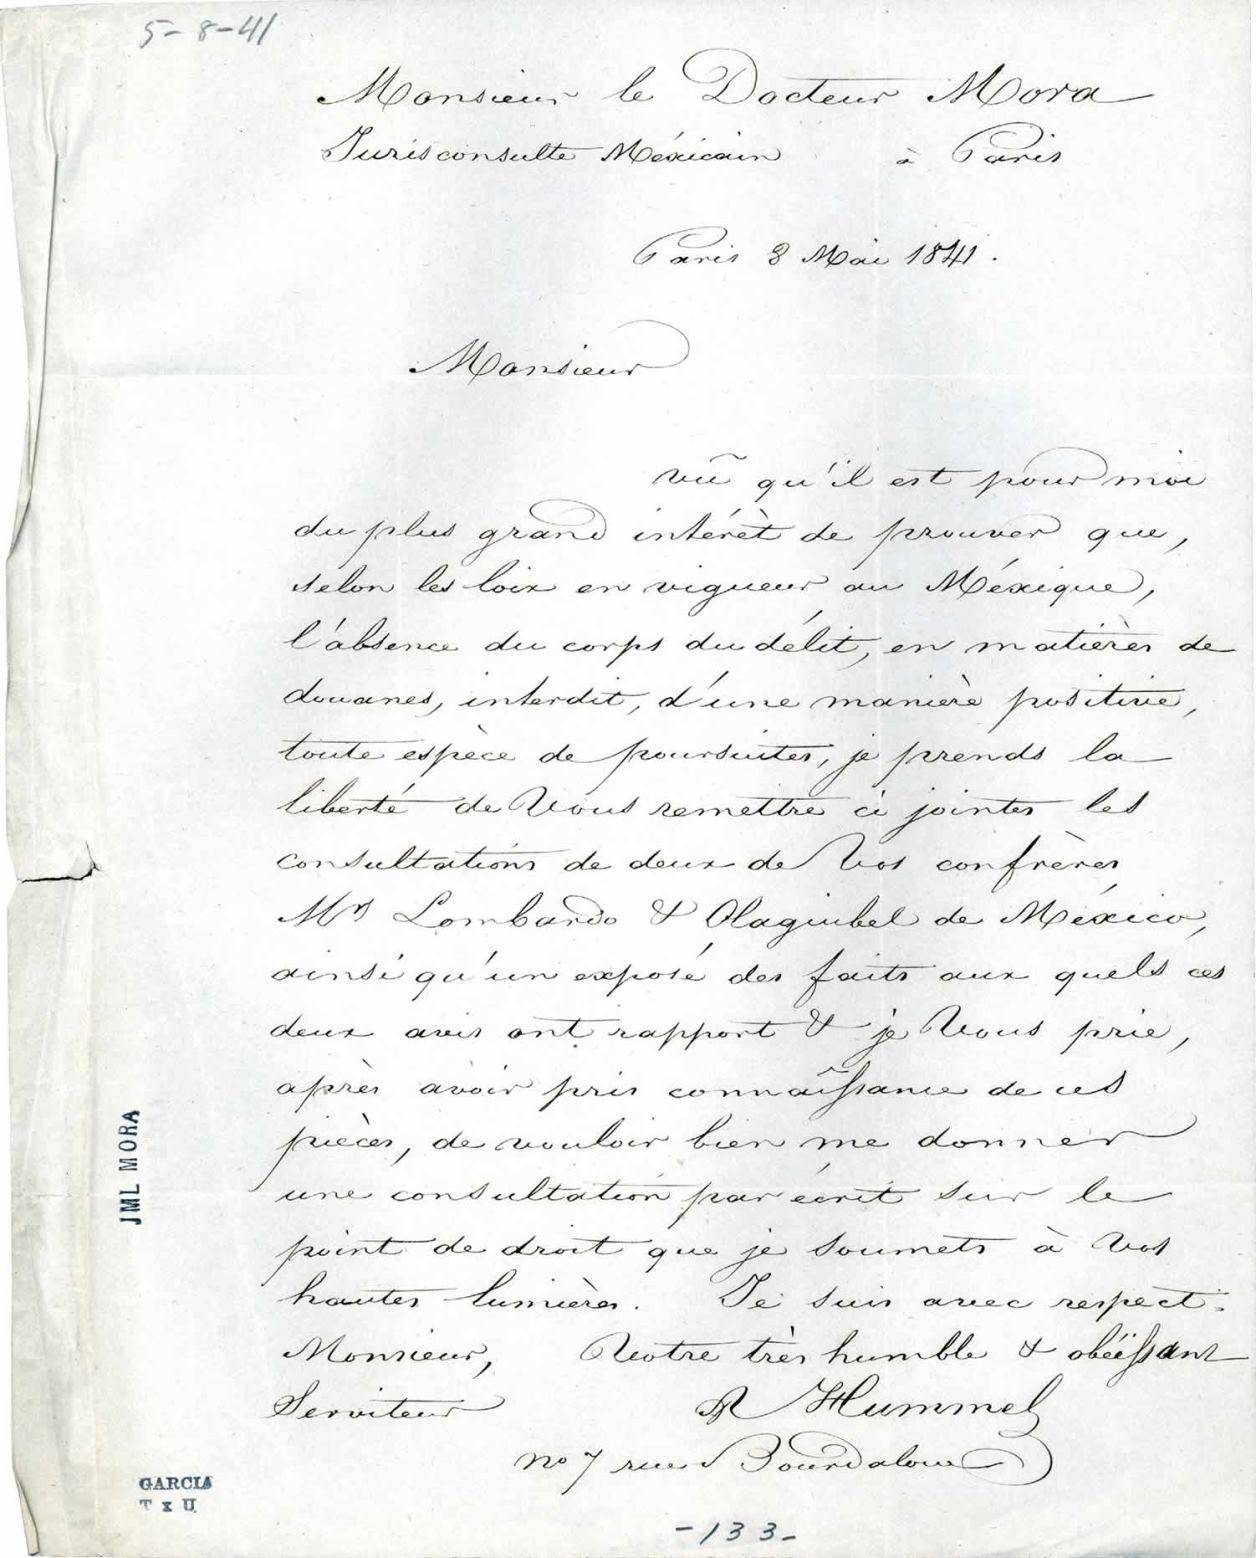 5-8-41
Monsieur le Docteur Mora
Jurisconsulte Méxicain à Paris
Paris 8 Mai 1841.
Monsieur
vû qu'il est pour moi
du plus grand intérêt de prouver que,
selon les loix en vigueur au Méxique,
l'absence du corps du délit, en matières de
douanes, interdit, d'une manière positive,
toute espèce de poursuites, je prends la
liberté de Vous remettre ci jointes les
consultations de deux de Vos confrères
Mrs Lombardo & Olaguibel de México,
ainsi qu'un exposé des faits aux quels ces
deux avis ont rapport & je Vous prie,
après avoir pris connaîssance de ces
pièces, de vouloir bien me donner
une consultation par écrit sur le
point de droit que je soumets à Vos
hautes lumières. Je suis avec respect.
Monsieur, Votre très humble & obéïssant
Serviteur Hummel
No 7 rue Bourdaloue
JML MORA
GARCIA
T x U
-133-